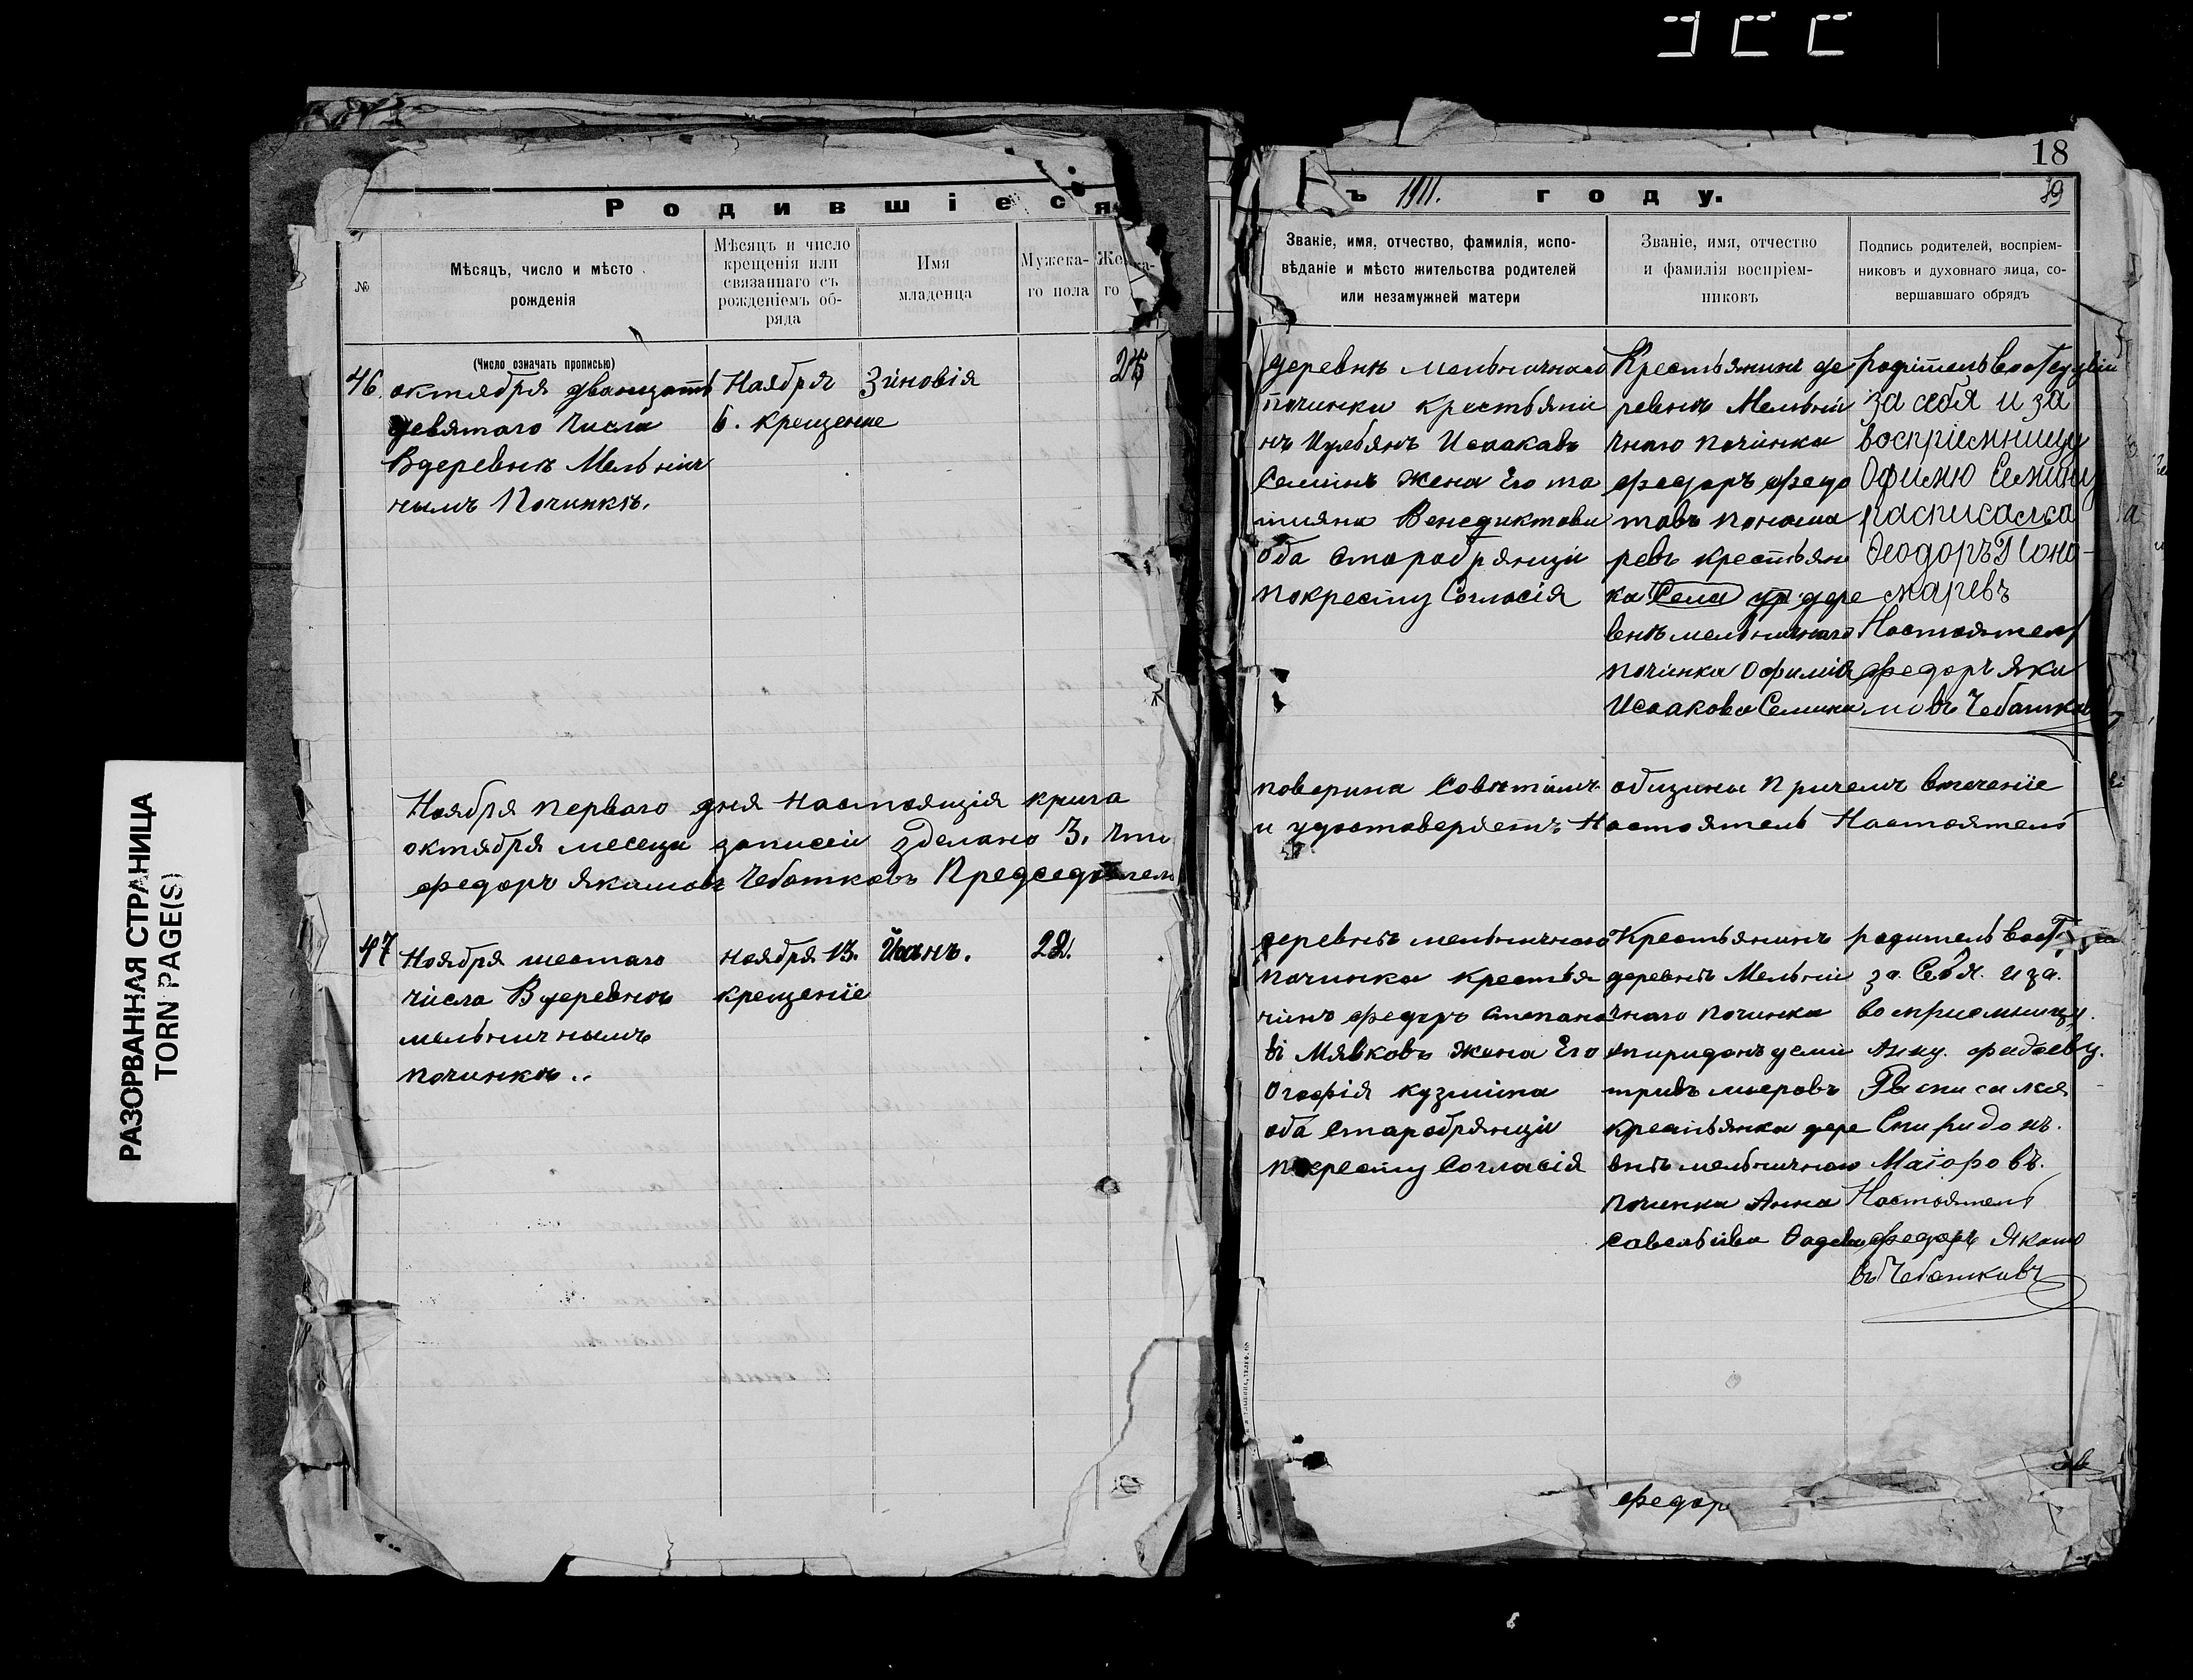 18
Родившіеся
ъ 1911. году.
39
№
Мѣсяцъ, число и мѣсто
рожденія
Мѣсяцъ и число
крещенія или
связаннаго съ
рожденіемъ об-
ряда
Имя
младенца
Мужска-
го пола
Же ка-
го
Званіе, имя, отчество, фамилія, испо-
вѣданіе и мѣсто жительства родителей
или незамужней матери
Званіе, имя, отчество
и фамилія воспріем-
никовъ
Подпись родителей, воспріем-
никовъ и духовнаго лица, со-
вершавшаго обрядъ
(Число означать прописью)
46.
октября дванцать
девятаго Числа
Вдеревнѣ Мельнич
нымъ Починкѣ.
Ноября
6. крещение
Зиновія
25
деревнѣ мельничнаго
починка крестьяни
нъ Иулбянъ Исаакавъ
Семинъ жена Его та
тияна Венедиктова
оба старобрянци
покресту Согласія
Крестьянинъ де
ревнѣ Мельни
чнаго починка
федоръ федо
товъ понома
ревъ крестьян
ка дере
венѣ мельничнаго
починка Офимия
Исаакова Семина
за себя и за
воспріемницу
Офимю Семину
расписался
Феодоръ Поно-
маревъ
Настоятель
федоръ Яки
мовъ Чебатков
Ноября перваго дня настоящія книга
октября месеца записеи зделано 3. что
федоръ Якимовъ Чебатковъ Председатель
поверина Советамъ общины Причемъ втечение
и удостоверяетъ Настоятель Настоятель
47
Ноября шестаго
числа Вдеревнѣ
мельничнымъ
починкѣ..
ноября 13.
крещение
Иоанъ.
22.
деревнѣ мельничнаго
починка крестья
нинъ федоръ степано
ві Мявковъ жена Его
Огафія кузмина
оба старобрянци
покресту Согласія
Крестьянинъ
деревнѣ Мельни
чнаго починка
спиридонъ дсми
тривъ маеровъ
крестьянка дере
внѣ мельничнаго
починка Анна
савельива Фадева
за. Себя. и за.
восприемницу.
Анну. фадееву.
Росписался
Спиридонъ.
Маіоровъ.
Настоятель
федоръ Якимо
въ Чебатковъ
федор
РАЗОРВАННАЯ СТРАНИЦА
TORN PAGE(S)